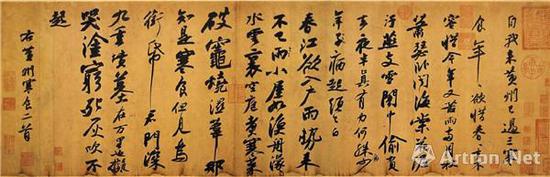 自我来黄州已過三寒
食年年欲惜春春去不
容惜今年又苦雨兩月秋
蕭瑟卧聞海棠花泥
汙燕支雪闇中偷負
去夜半真有力何殊少
年子病起頭已白
春江欲入户雨勢来
不已雨小屋如漁舟濛濛
水雲裏空庖煮寒菜
破竈燒濕葦那
知是寒食但見烏
銜帋君門深
九重墳墓在万里也擬
哭塗窮死灰吹不
起
右黄州寒食二首
Artron.Net